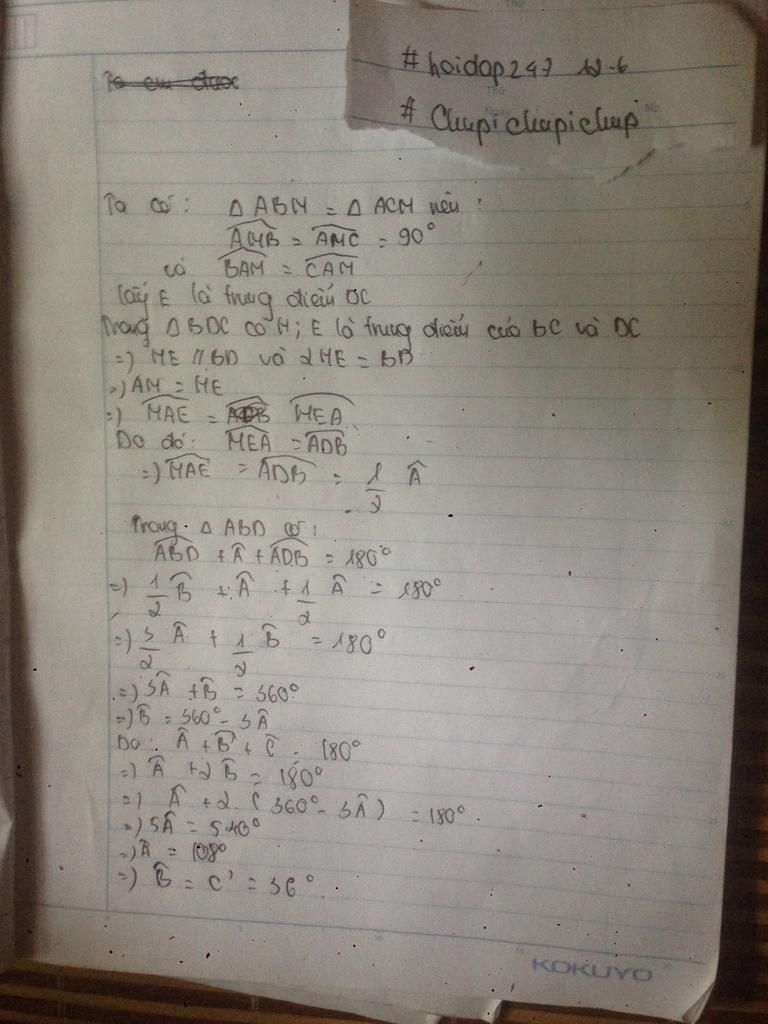 #hoidap247 12-6
# Chupichapichup
Ta có: Δ ABM = Δ ACM nên :
AMB = AMC = 90°
và BAM = CAM
lấy E là trung điểm DC
Trong Δ BDC có M; E là trung điểm của BC và DC
=) ME // BD và 2ME = BD
=) AM = ME
=) MAE = MEA
Do đó: MEA = ADB
=) MAE = ADB = 1/2 Â
Trong Δ ABD có:
ABD + Â + ADB = 180°
=) 1/2 B̂ + Â + 1/2 Â = 180°
=) 3/2 Â + 1/2 B̂ = 180°
=) 3Â + B̂ = 360°
=) B̂ = 360° - 3Â
Do: Â + B̂ + Ĉ = 180°
=) Â + 2B̂ = 180°
=) Â + 2. ( 360° - 3Â ) = 180°
=) 5Â = 540°
=) Â = 108°
=) B̂ = C' = 36°
KOKUYO